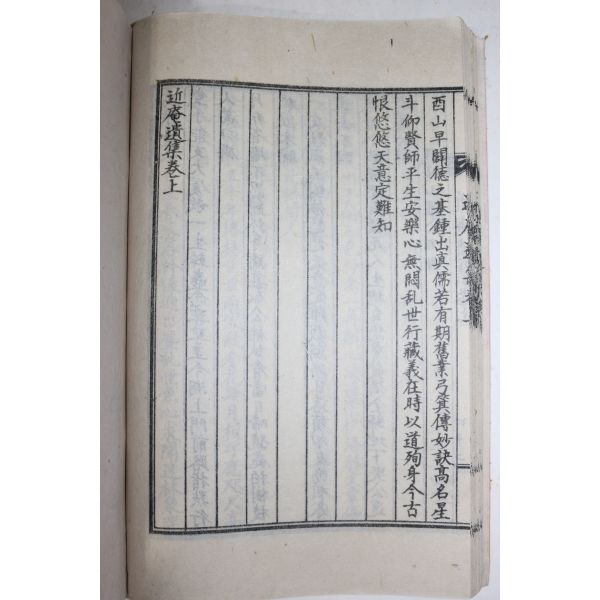 酉山早闢德之基鍾出真儒若有期舊業弓箕傳妙訣高名星
斗仰賢師平生安樂心無悶乱世行藏義在時以道殉身今古
恨悠悠天意定難知
近庵遺集卷上